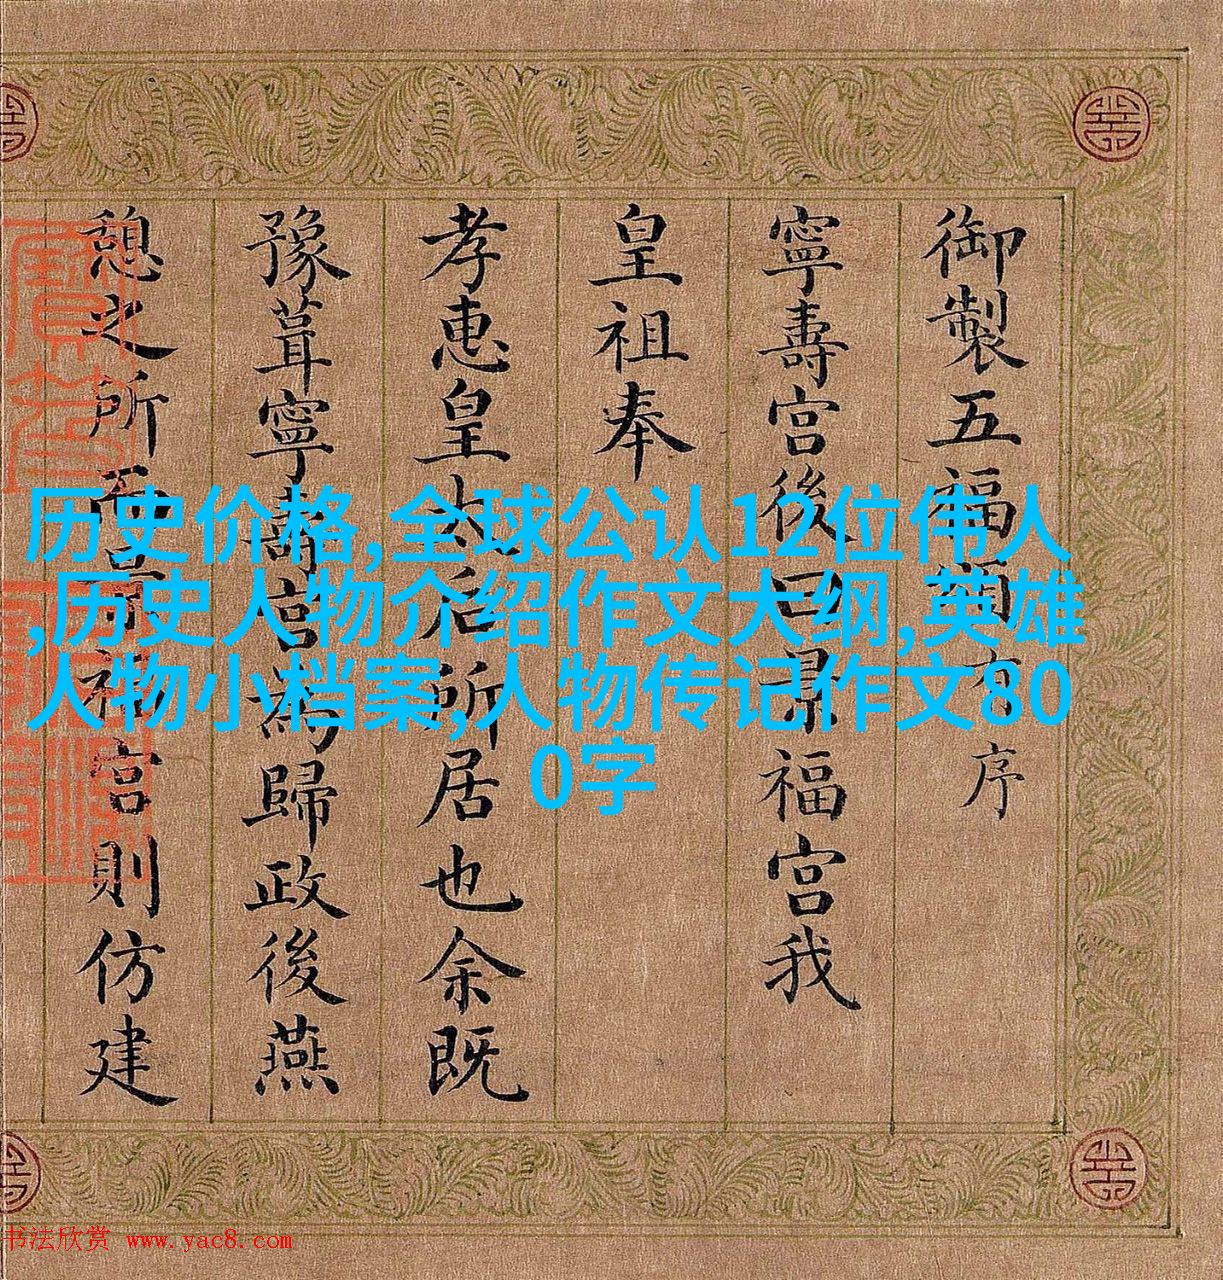 御製五福頌序
寧壽宮後曰景福宮我
皇祖奉
孝惠皇太后所居也余既
豫葺寧壽宮為歸政後燕
憩之所而景福宮則仿建
历史价格,全球公认12位伟人
,历史人物介绍作文大纲,英雄
人物小档案,人物传记作文80
0字
书法欣赏 www.yac8.com